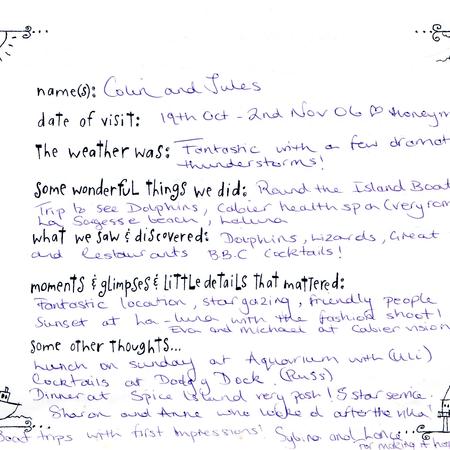 name(s): Colin and Jules
date of visit: 19th Oct - 2nd Nov 06 ♡ Honeym
The weather was: Fantastic with a few dramat
thunderstorms!
Some wonderful things we did: Round the Island Boat
Trip to see Dolphins, Cabier health spa (very rom
La Sagesse beach, Laluna
what we saw & discovered: Dolphins, Lizards, Great
and Restaurants BBC Cocktails!
moments & glimpses & little details that mattered:
Fantastic location, stargazing, friendly people
Sunset at La-luna with the fashion shoot!
Eva and Michael at Cabier vision
Some other thoughts...
Lunch on Sunday at Aquarium with (Uli)
Cocktails at Doddy Dock. (Russ)
Dinner at Spice Island very posh! 5 star service.
Sharon and Anne who looked after the villa!
Boat trips with first Impressions! and
for making it